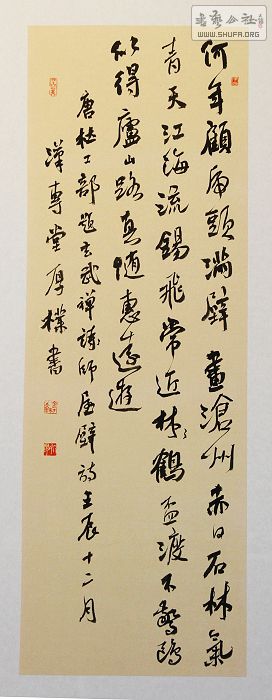 书艺公社
WWW.SHUFA.ORG
何年顧虎頭滿壁畫滄州赤日石林氣
青天江海流錫飛常近林鶴盃渡不驚鷗
似得廬山路真隨惠遠遊
唐杜工部題玄武禪詩師屋壁詩壬辰十二月
漢專堂厚樸書